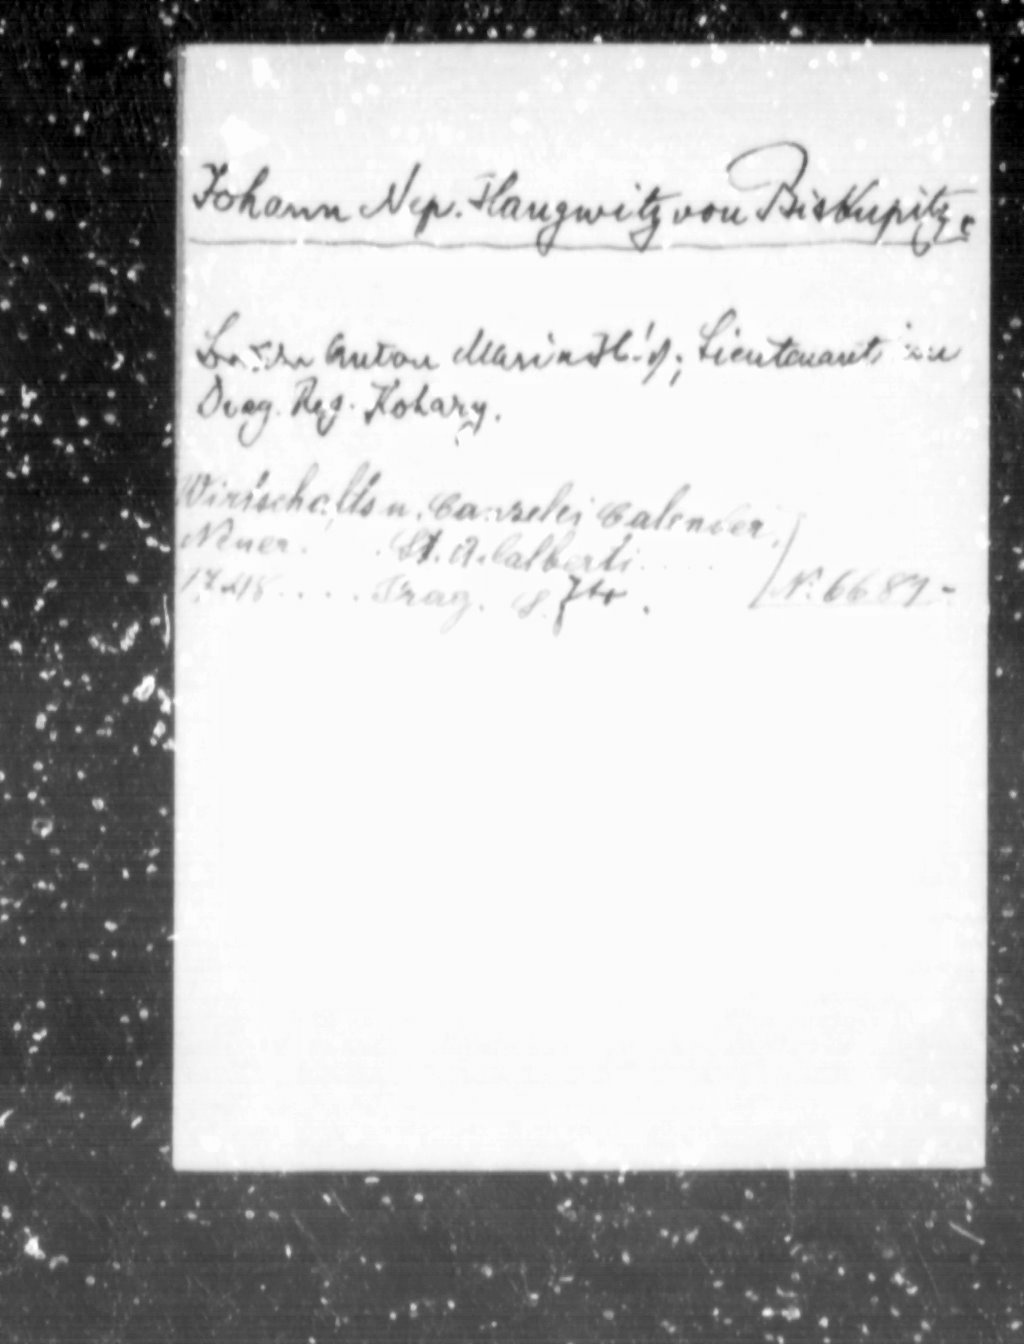 Johann Nep. Haugwitz von Biskupitz.
Anton Maria H. v. ; Lieutenant im
Drag. Reg. Kohary.
Wirtschafts u. Canzelei Calender,
Neuer . . St. Adalberti . . . .
1748 . . . . Prag. 8. } N. 6681 -